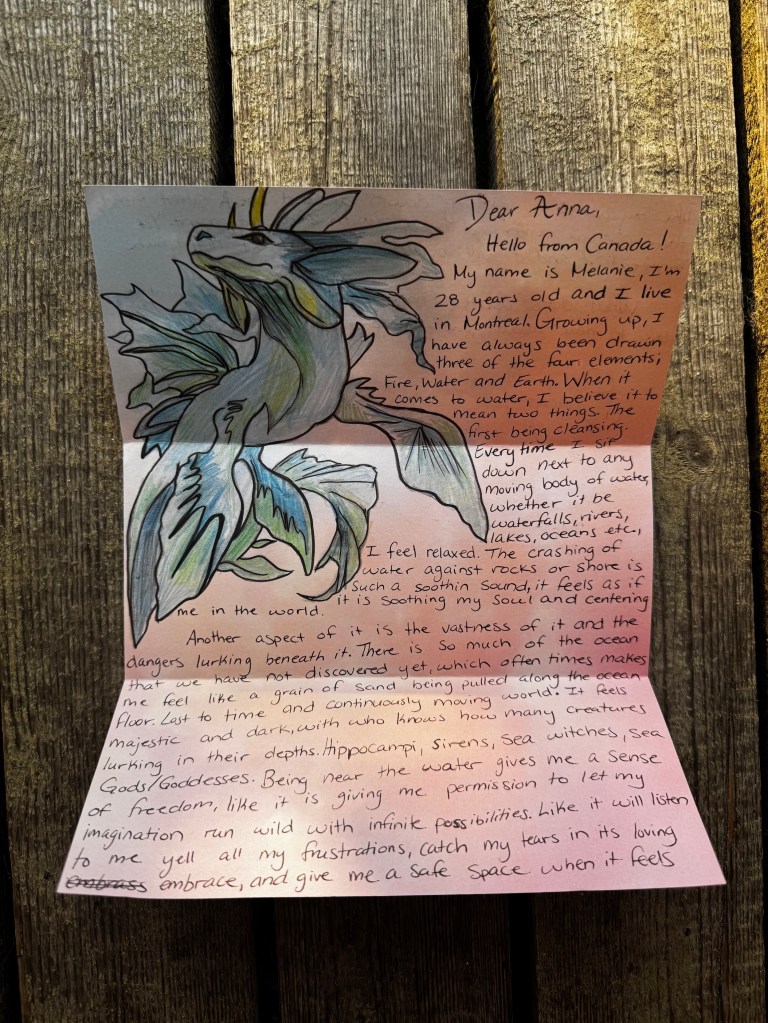 Dear Anna,
Hello from Canada!
My name is Melanie, I'm
28 years old and I live
in Montreal. Growing up, I
have always been drawn
three of the four elements;
Fire, Water and Earth. When it
comes to water, I believe it to
mean two things. The
first being cleansing.
Every time I sit
down next to any
moving body of water,
whether it be
waterfalls, rivers,
lakes, oceans etc.,
I feel relaxed. The crashing of
water against rocks or shore is
such a soothin sound, it feels as if
it is soothing my soul and centering
me in the world.
Another aspect of it is the vastness of it and the
dangers lurking beneath it. There is so much of the ocean
that we have not discovered yet, which often times makes
me feel like a grain of sand being pulled along the ocean
floor. Lost to time and continuously moving world. It feels
majestic and dark, with who knows how many creatures
lurking in their depths. Hippocampi, sirens, sea witches, sea
Gods/Goddesses. Being near the water gives me a sense
of freedom, like it is giving me permission to let my
imagination run wild with infinite possibilities. Like it will listen
to me yell all my frustrations, catch my tears in its loving
embrace, and give me a safe space when it feels